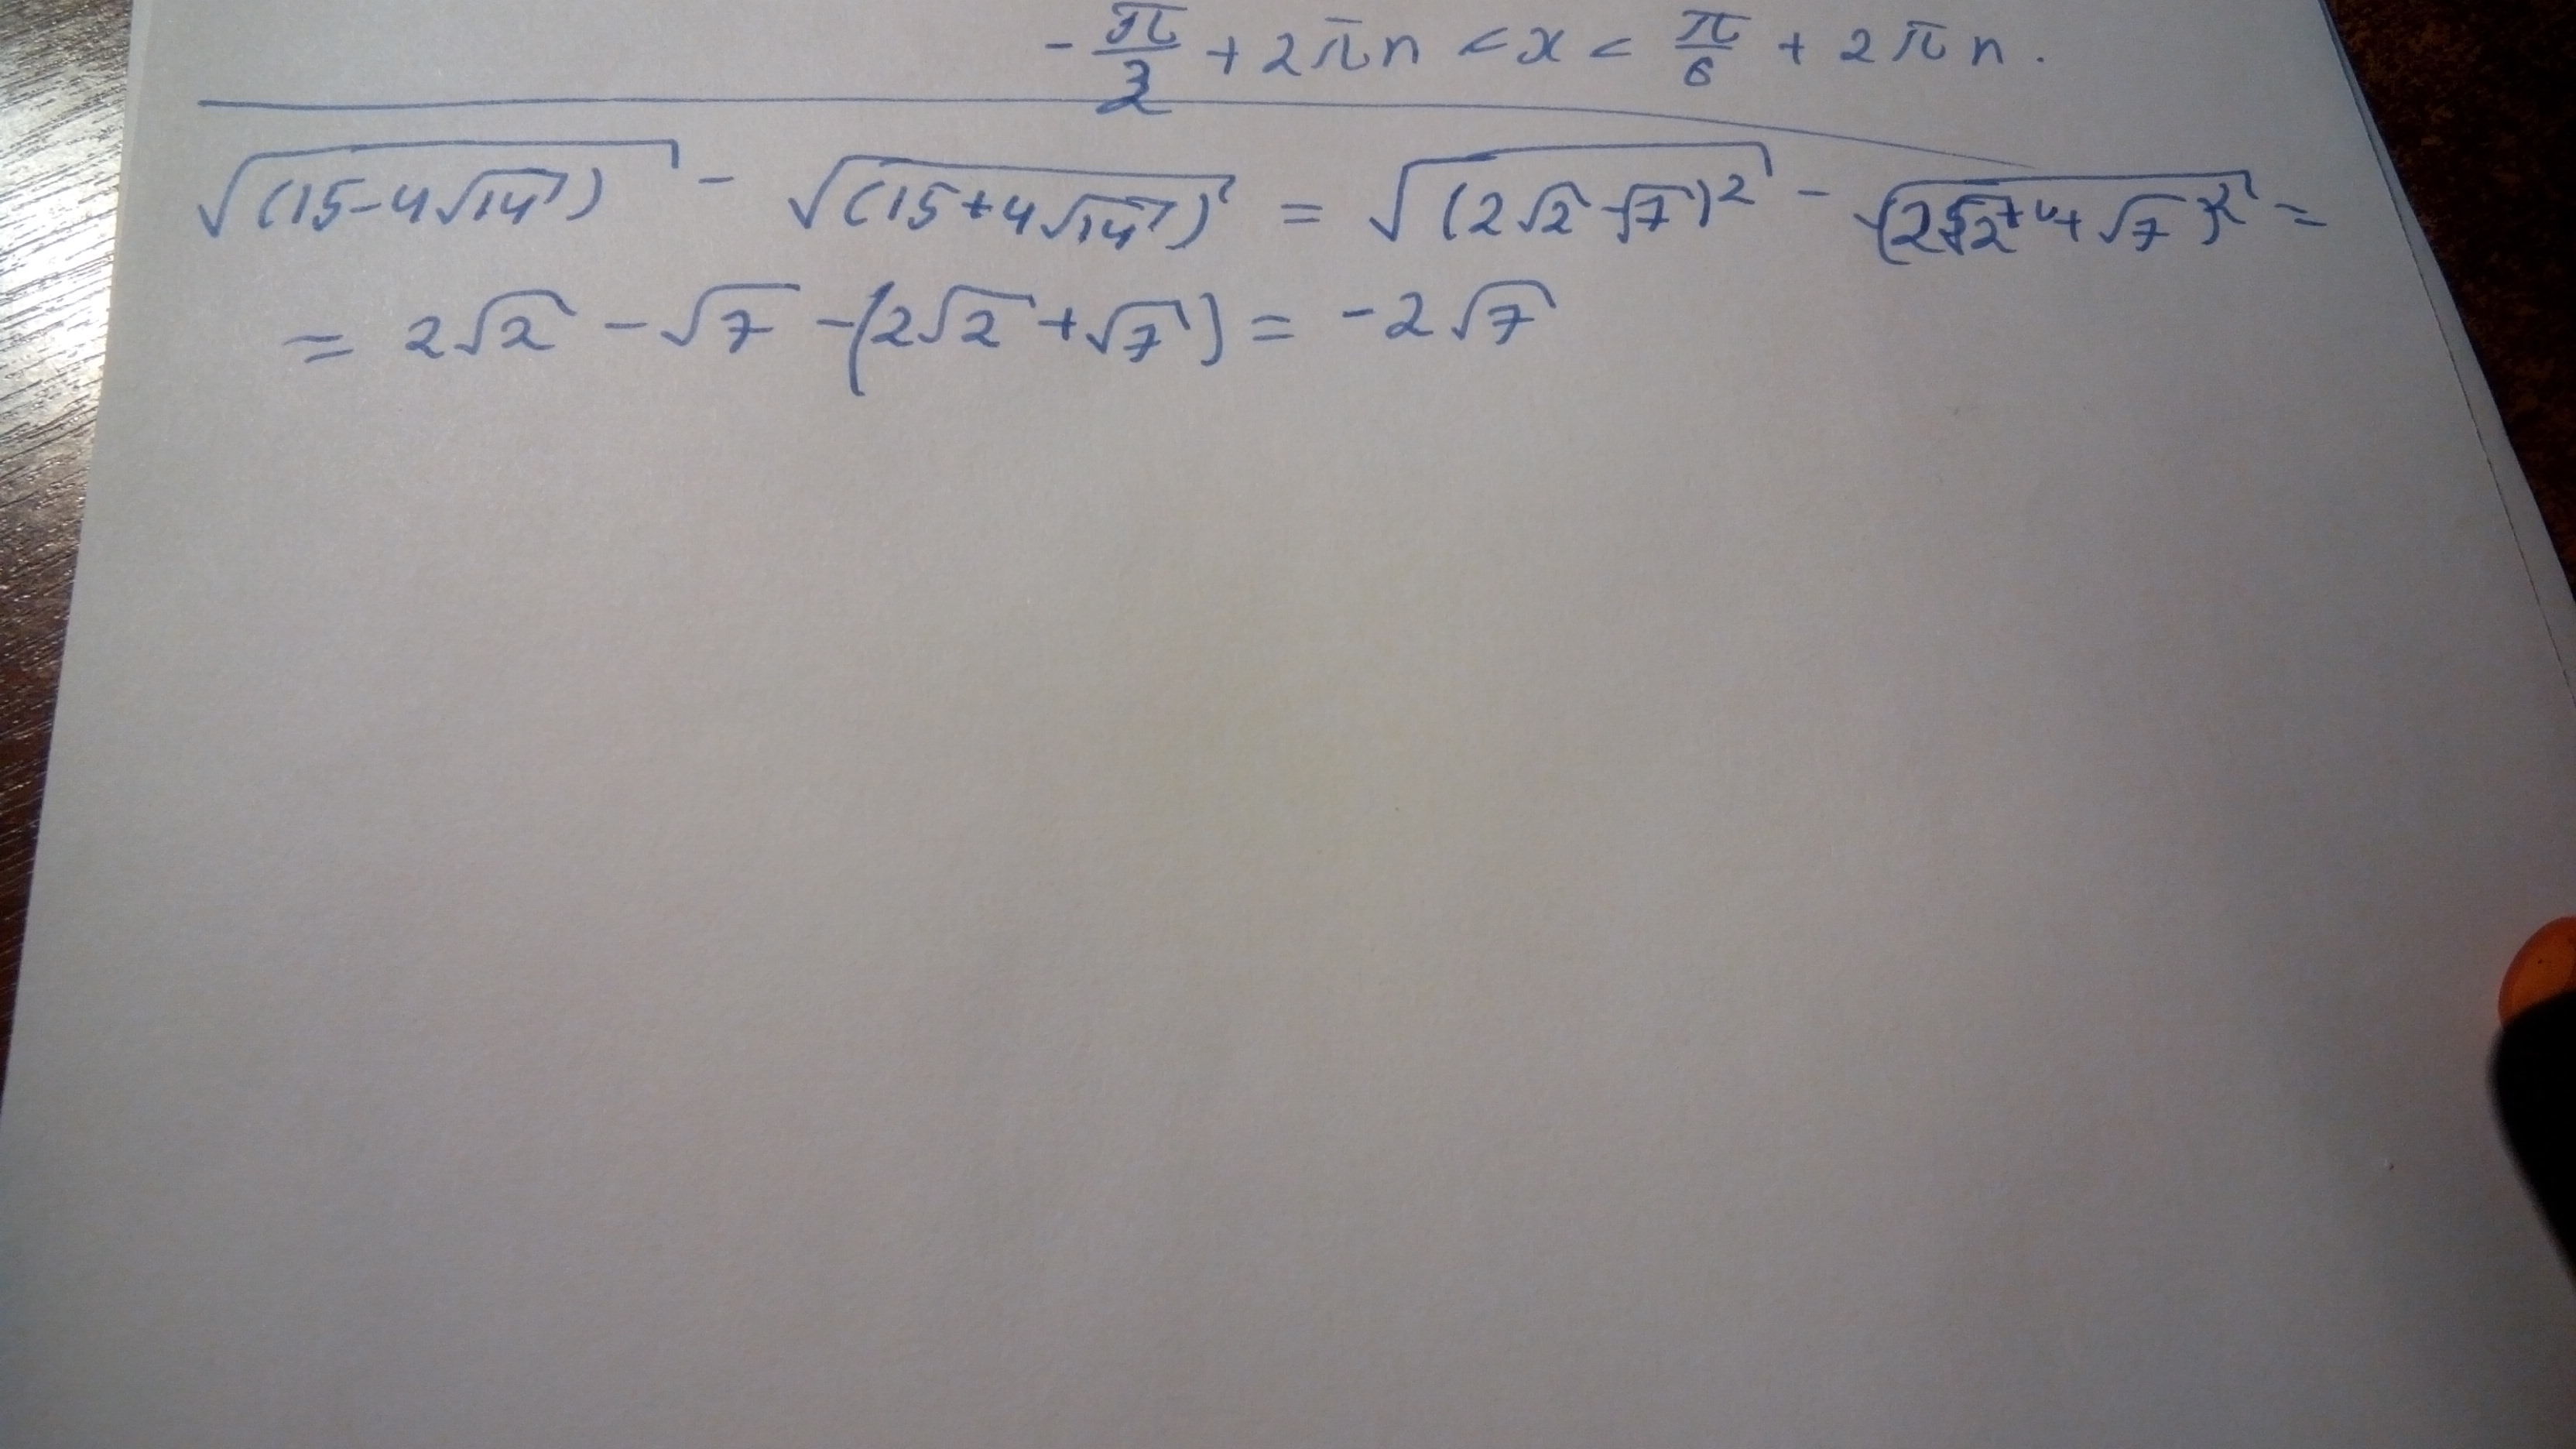 -π/2 + 2πn < x < π/6 + 2πn.
√(15-4√14) - √(15+4√14) = √(2√2-√7)² - √(2√2+√7)² =
= 2√2 - √7 - (2√2+√7) = -2√7